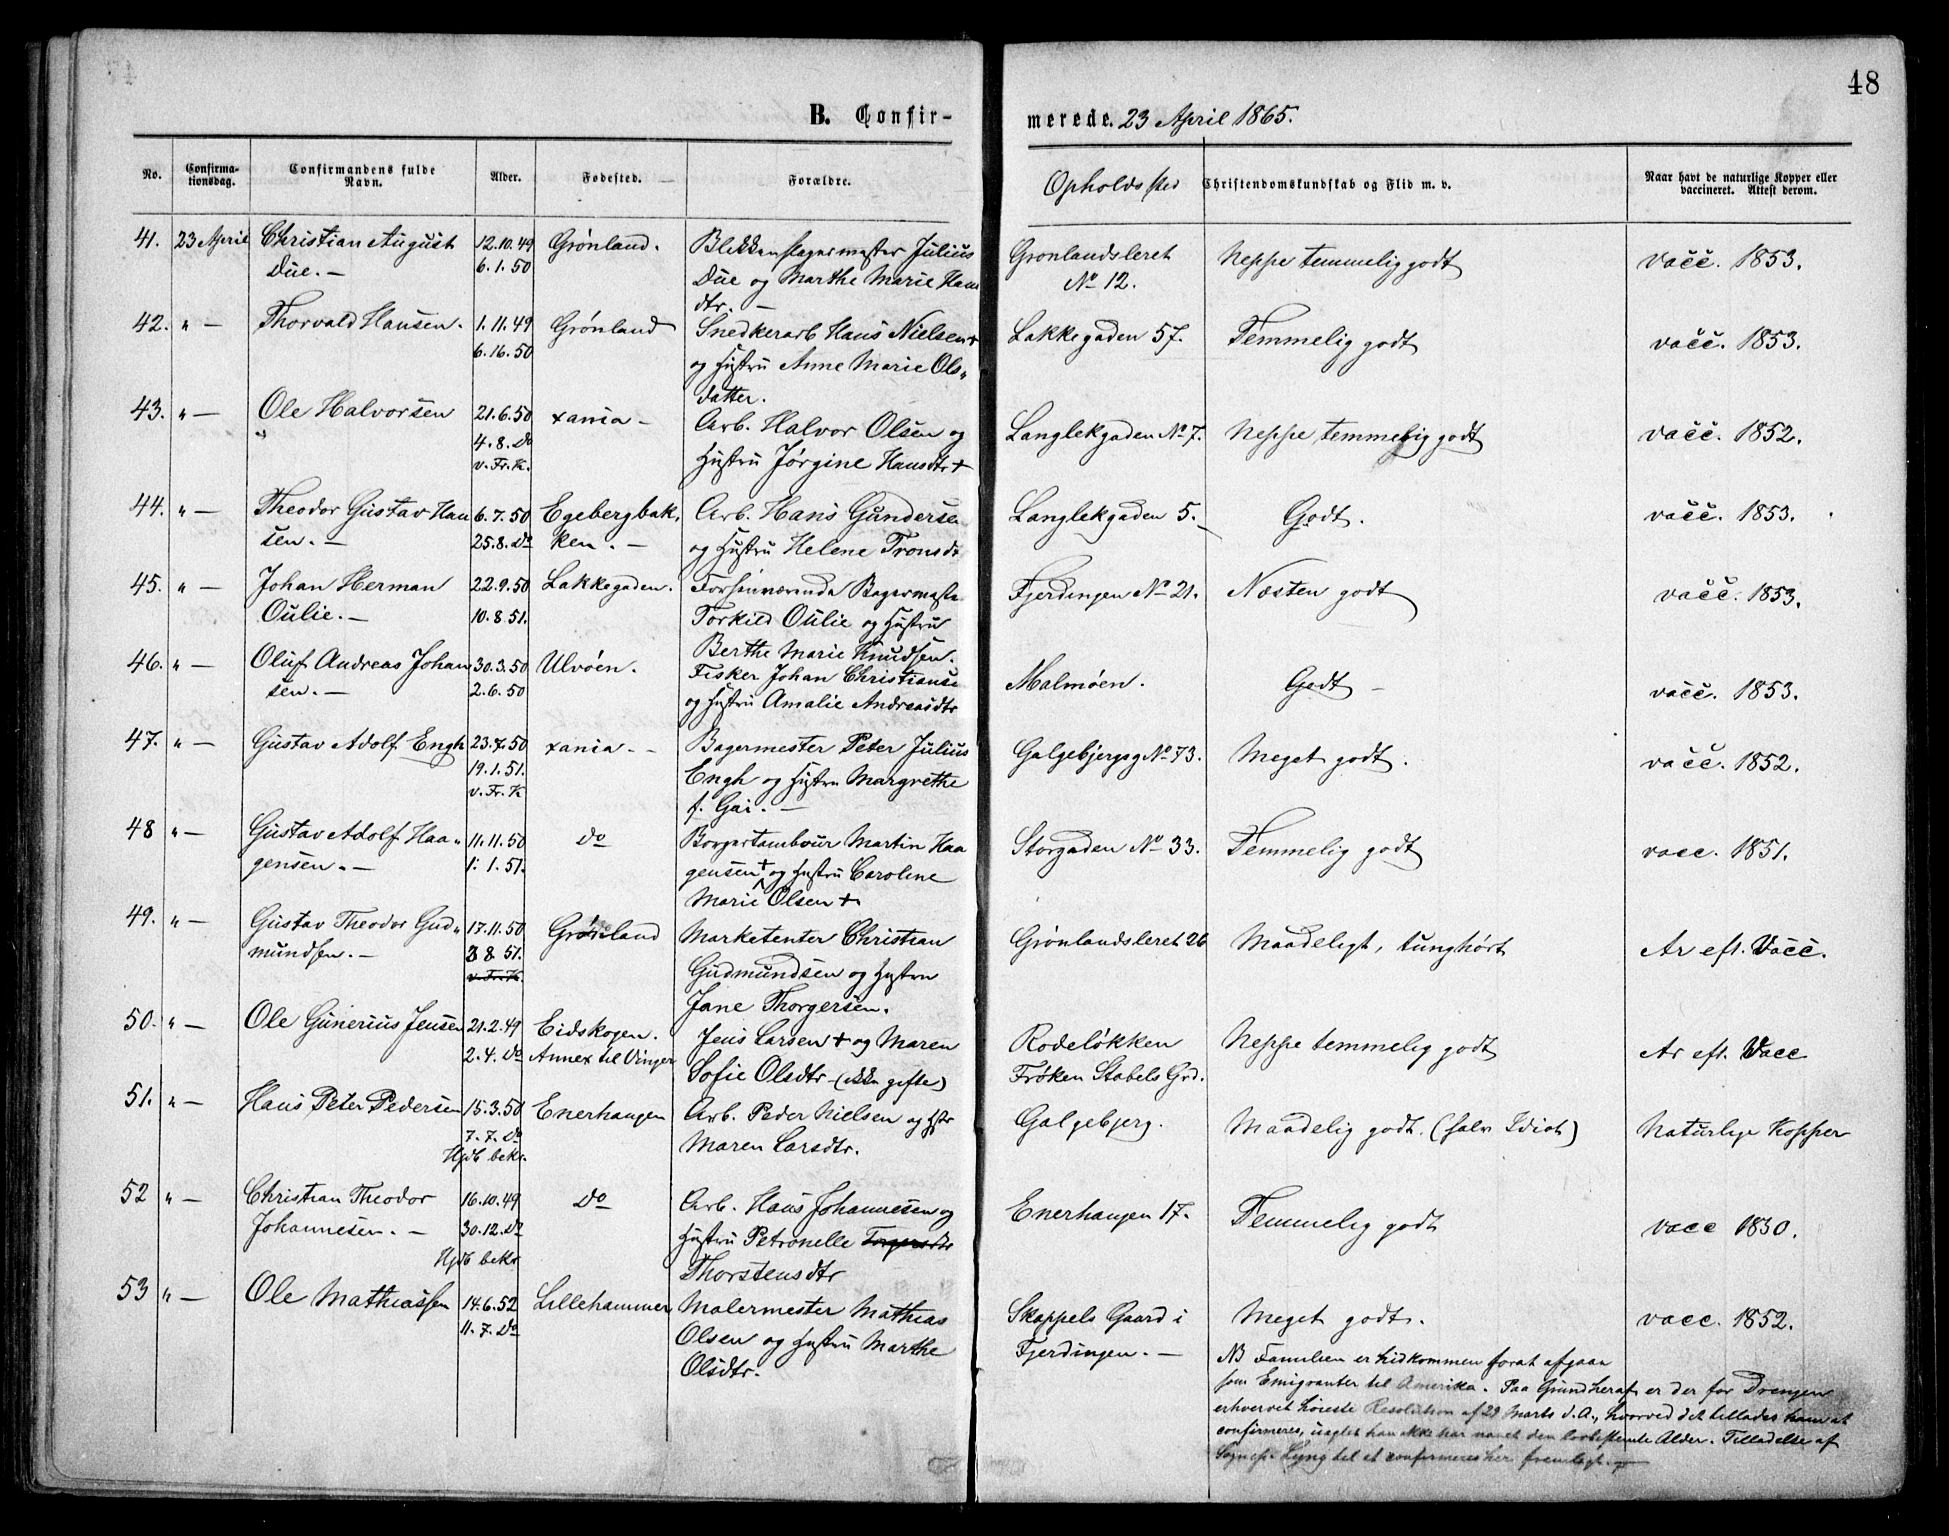 48
B. Confir-
merede. 23 April 1865.
No.
Confirma-
tionsdag.
Confirmandens fulde
Navn.
Alder.
Fødested.
Forældre.
Opholdssted
Christendomskundskab og Flid m. v.
Naar havt de naturlige Kopper eller
vaccineret. Attest derom.
41. 23 April Christian August 12.10.49 Grønland. Blikkenslagermester Julius Gronlandsleret Neppe temmelig godt vacc. 1853.
Due. — 6.1.50 Due og Marthe Marie Hans No 12.
dtr. —
42. " — Thorvald Hansen. 1.11.49 Grønland Snedkerarb Hans Nielsen + Lakkegaden 57. Temmelig godt vacc. 1853.
6.16.50 og Hustru Anne Marie Ols„
datter.
43. " — Ole Halvorsen 21.6.50 xania — Arb. Halvor Olsen og Langlekgaden No 7. Neppe temmelig godt vacc. 1852.
4.8. Do Hustru Jørgine Hansdtr +
v. Fr. K.
44. " — Theodor Gustav Han 6.7.50 Egebergbak, Arb. Hans Gundersen Langlekgaden 5. Godt. vacc. 1853.
sen. — 25.8. Do ken. — og Hustru Helene Tronsdt
45. " — Johan Herman 22.9.50 Lakkegaden. Forhenværende Bagermester Fjerdingen No 21. Næsten godt vacc. 1853.
Oulie. — 10.8.51. Torkild Oulie og Hustru
Berthe Marie Knudsen.
46. " — Oluf Andreas Johan 30.3.50 Ulvøen. Fisker Johan Christiansen Malmøen. Godt — vacc. 1853.
sen. — 2.6.50 og Hustru Amalie Andreasdtr
47. " — Gustav Adolf Engh 23.7.50 xania. — Bagermester Peter Julius Galgebjergsg No 73. Meget godt. vacc. 1852.
19.1.51. Engh og Hustru Margrethe
v. Fr. K f. Gai. —
48 " — Gustav Adolf Haa„ 11.11.50 Do Borgertambour Martin Haa Storgaden No 33. Temmelig godt vacc. 1851.
gensen. — 1.1.51. gensen + og Hustru Caroline
Marie Olsen +
49. " — Gustav Theodor Gud„ 17.11.50 Grønland Marketenter Christian Grønlandsleret 26 Maadeligt, tunghørt Ar eft. Vacc.
mundsen. — 3 8 51. Gudmundsen og Hustru
v. Fr. K. Jane Thorgersen.
50. " — Ole Gunerius Jensen 21.2.49 Eidskogen. Jens Larsen + og Maren Rodeløkken Neppe temmelig godt Ar eft. Vacc
2.4. Do Annex til Vinger Sofie Olsdtr — (ikke gifte) Frøken Stabels Grd.
51. " — Hans Peter Pedersen 15.3.50 Enerhaugen Arb. Peder Nielsen og Hstr Galgebjerg. Maadelig godt. (halv Idiot) Naturlige Kopper
7.7. Do Maren Larsdtr.
Hjdb bekr.
52 " — Christian Theodor 16.10.49 Do Arb. Hans Johannesen og Enerhaugen 17. Temmelig godt vacc 1850.
Johannesen. — 30.12. Do Hustru Petronelle Torgersdtr
Hjdb bekr Thorstensdtr
53 " — Ole Mathiassen 14.6.52 Lillehammer Malermester Mathias Skappels Gaard i Meget godt. vacc. 1852.
11.7. Do Olsen og Hustru Marthe Fjerdingen. —
Olsdtr.
NB Familien er hidkommen forat afgaa
som Emigranter til Amerika. Paa Grund heraf er der for Drengen
erhvervet høieste Resolution af 29 Marts d. A., hvorved det tillades ham at
confirmeres, uagtet han ikke har naaet den lovbestemte Alder. Tilladelse af
Sognepr Lyng til at confirmeres her fremlagt.